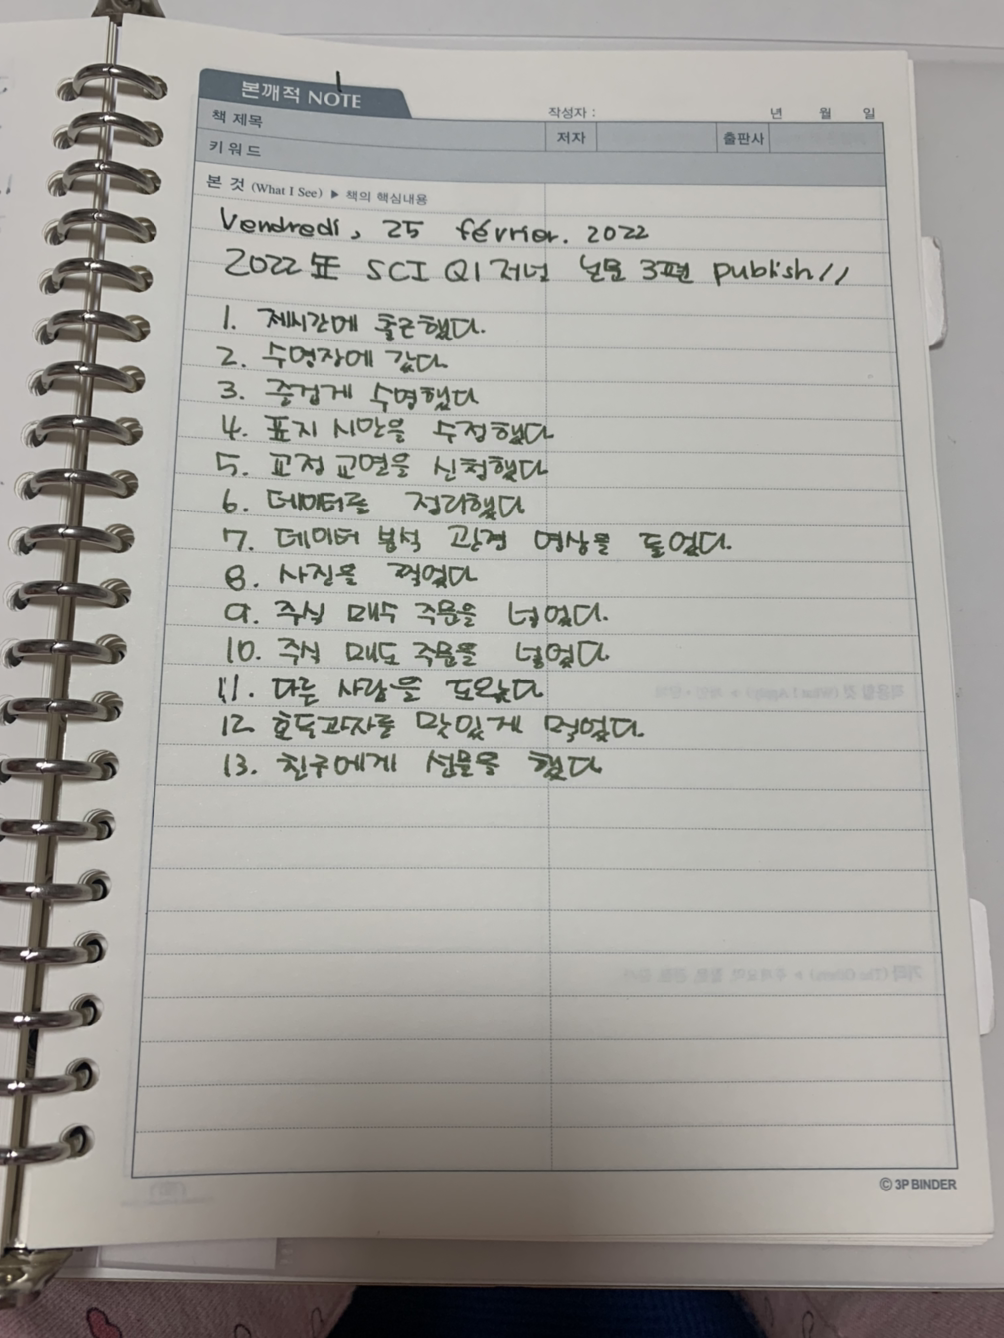 본깨적 NOTE
작성자 : 년 월 일
책 제목 저자 출판사
키워드
본 것 (What I See) ▶ 책의 핵심내용
Vendredi, 25 février. 2022
2022年 SCI Q1 저널 논문 3편 publish!!
1. 제시간에 출근했다.
2. 수영장에 갔다.
3. 즐겁게 수영했다
4. 표지 시안을 수정했다
5. 교정 교열을 신청했다
6. 데이터를 정리했다
7. 데이터 분석 관련 영상을 들었다.
8. 사진을 찍었다
9. 주식 매수 주문을 넣었다.
10. 주식 매도 주문을 넣었다.
11. 다른 사람을 도왔다
12. 호두과자를 맛있게 먹었다.
13. 친구에게 선물을 했다
© 3P BINDER